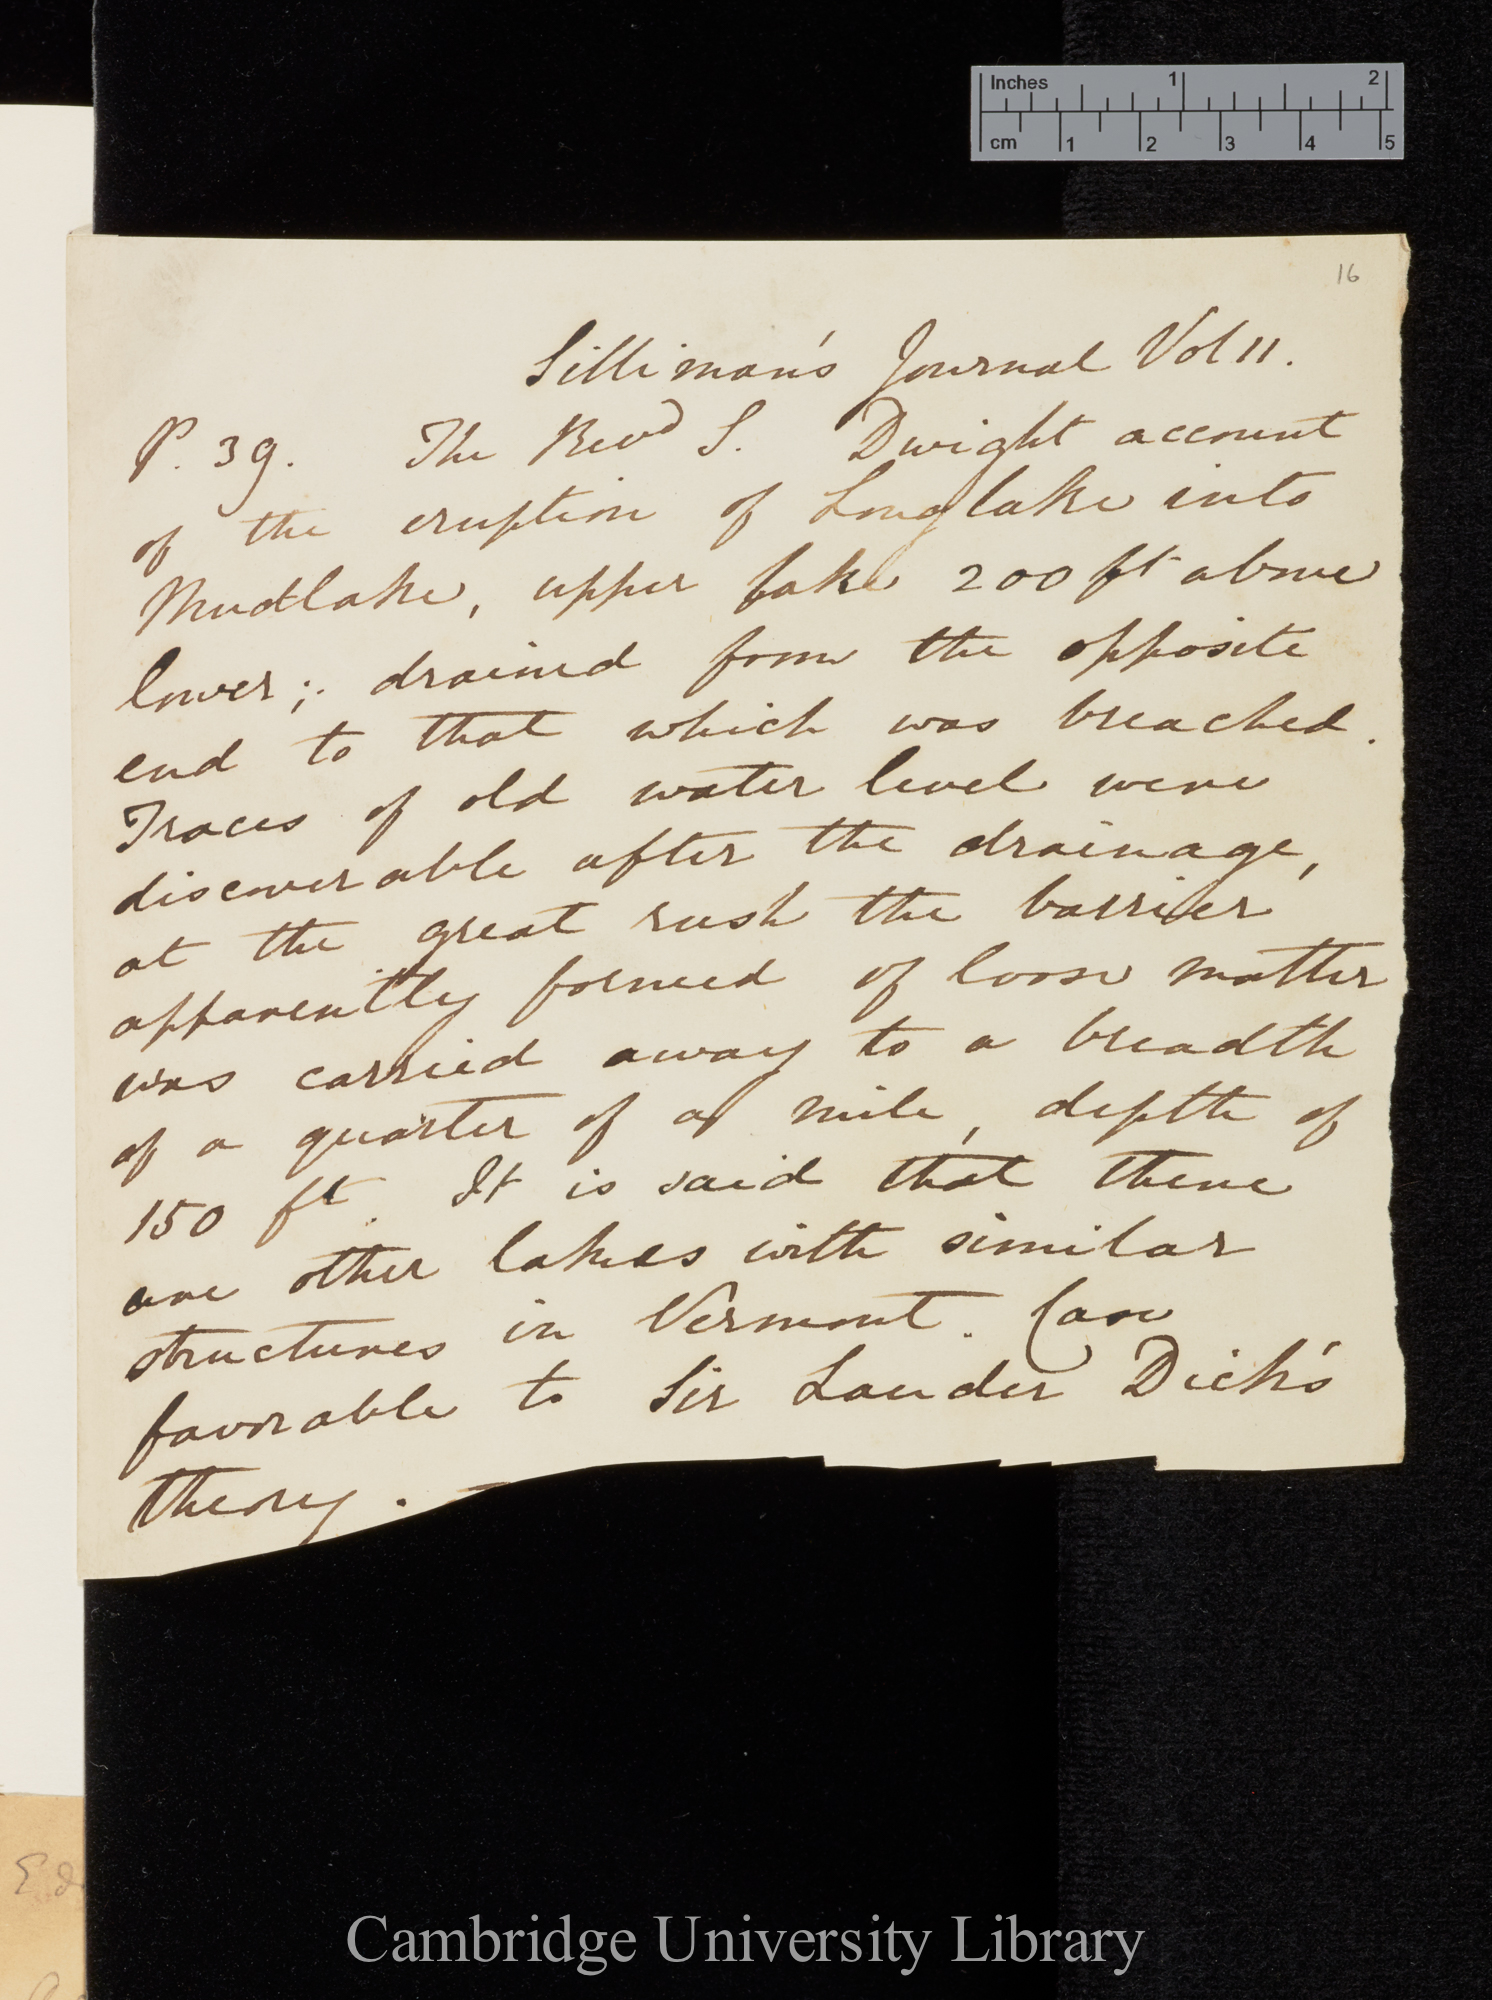 Inches 1 2
cm 1 2 3 4 5
16
Silliman's Journal Vol 11.
P. 39. The Revd S. Dwight account
of the eruption of Longlake into
Mudlake, upper lake 200 ft above
lower; drained from the opposite
end to that which was breached.
Traces of old water level were
discoverable after the drainage,
at the great rush the barrier
apparently formed of loose matter
was carried away to a breadth
of a quarter of a mile, depth of
150 ft. It is said that there
are other lakes with similar
structures in Vermont. Case
favorable to Sir Lauder Dick's
theory. —
Cambridge University Library